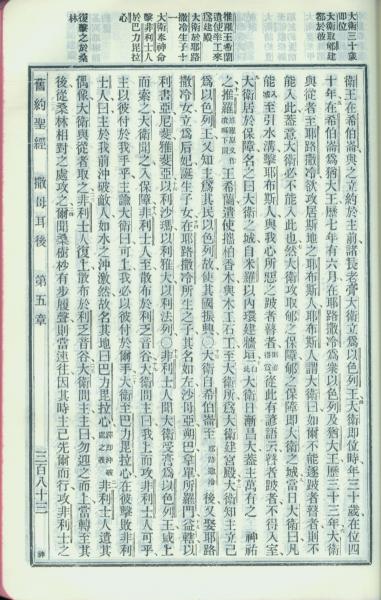 大衛三十歲
即位
大衛取郇建
都於彼
推羅王希蘭
遣使率工來
爲建殿
大衛於耶路
撒冷生子十
一
大衛奉神命
擊非利士人
於巴力毘拉
心
復擊之於桑
林
衛王在希伯崙與之立約於主前諸長老膏大衛立爲以色列王大衛即位時年三十歲在位四
十年在希伯崙爲猶大王歷七年有六月在耶路撒冷爲衆以色列及猶大王歷三十三年大衛
與從者至耶路撒冷欲攻居斯地之耶布斯人耶布斯人謂大衛曰如爾不能逐跛者瞽者則不
能入此蓋意大衛必不能入此也然大衛攻取郇之保障郇之保障即大衛之城當日大衛曰凡
能至引水溝擊耶布斯人與我心所惡之跛者瞽者從此有諺語云瞽者跛者不得入室
大衛居於保障名之曰大衛之城自米羅以內環建牆垣大衛日漸昌大蓋主萬有之 神祐
之推羅王希蘭遣使攜柏香木與木工石工至大衛所爲大衛建宮殿大衛知主立己
爲以色列王又知主爲其民以色列故使其國振興○大衛自希伯崙至耶路撒冷後又娶耶路
撒冷女立爲后妃誕生子女在耶路撒冷所生之子其名如左沙母亞朔巴拿單所羅門益轄以
利書亞尼斐雅斐亞以利沙瑪以利雅大以利法列○非利士人聞大衛受膏爲以色列王咸上
而索之大衛聞之入保障非利士人至散布於利乏音谷大衛問主曰我上而攻非利士人可乎
主以彼付於我手乎主諭大衛曰可上我必以彼付於爾手大衛至巴力毘拉心在彼擊敗非利
士人曰主於我前沖破敵人如水之沖激然故名其地曰巴力毘拉心非利士人遺其
偶像大衛與從者取之非利士人復上散布於利乏音谷大衛問主主曰勿迎之而上當轉至其
後從桑林相對之處攻之爾聞桑樹杪有步履聲則當速往因其時主已先爾而行攻非利士之
舊約聖經 撒母耳後 第五章 三百八十三 神